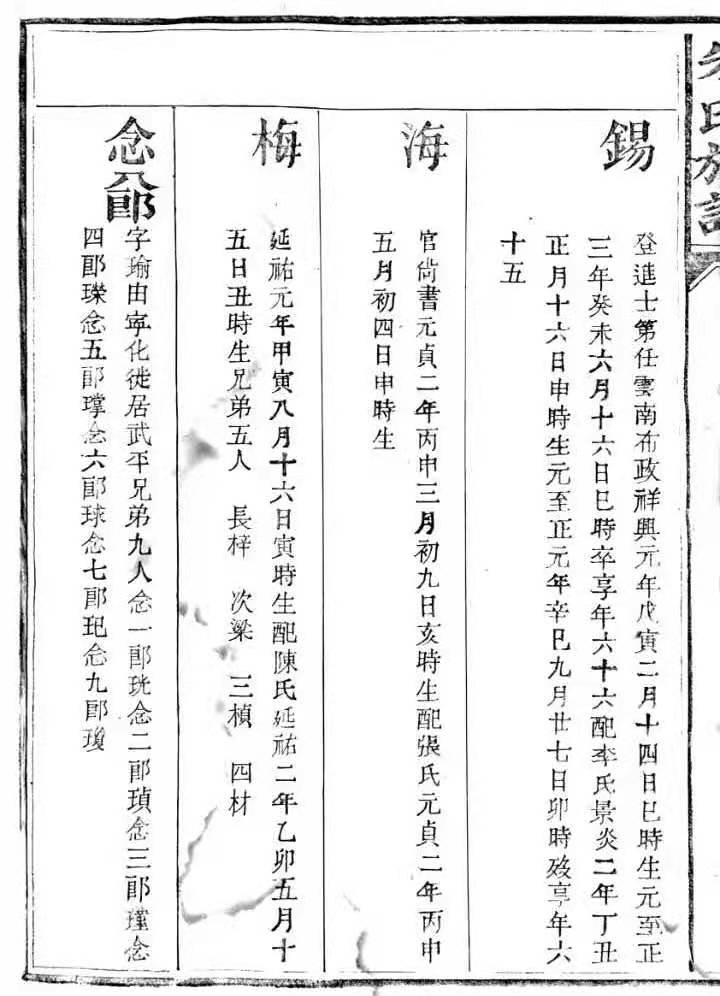 氏族譜
錫
登進士第任雲南布政祥興元年戊寅二月十四日巳時生元至正
三年癸未六月十六日巳時卒享年六十六配李氏景炎二年丁丑
正月十六日申時生元至正元年辛巳九月廿七日卯時歿享年六
十五
海
官尙書元貞二年丙申三月初九日亥時生配張氏元貞二年丙申
五月初四日申時生
梅
延祐元年甲寅八月十六日寅時生配陳氏延祐二年乙卯五月十
五日丑時生兄弟五人 長梓 次梁 三楨 四材
念八郎
字瑜由寧化徙居武平兄弟九人念一郎珖念二郎瑱念三郎瑾念
四郎瓅念五郎㻶念六郎球念七郎玘念九郎瓊